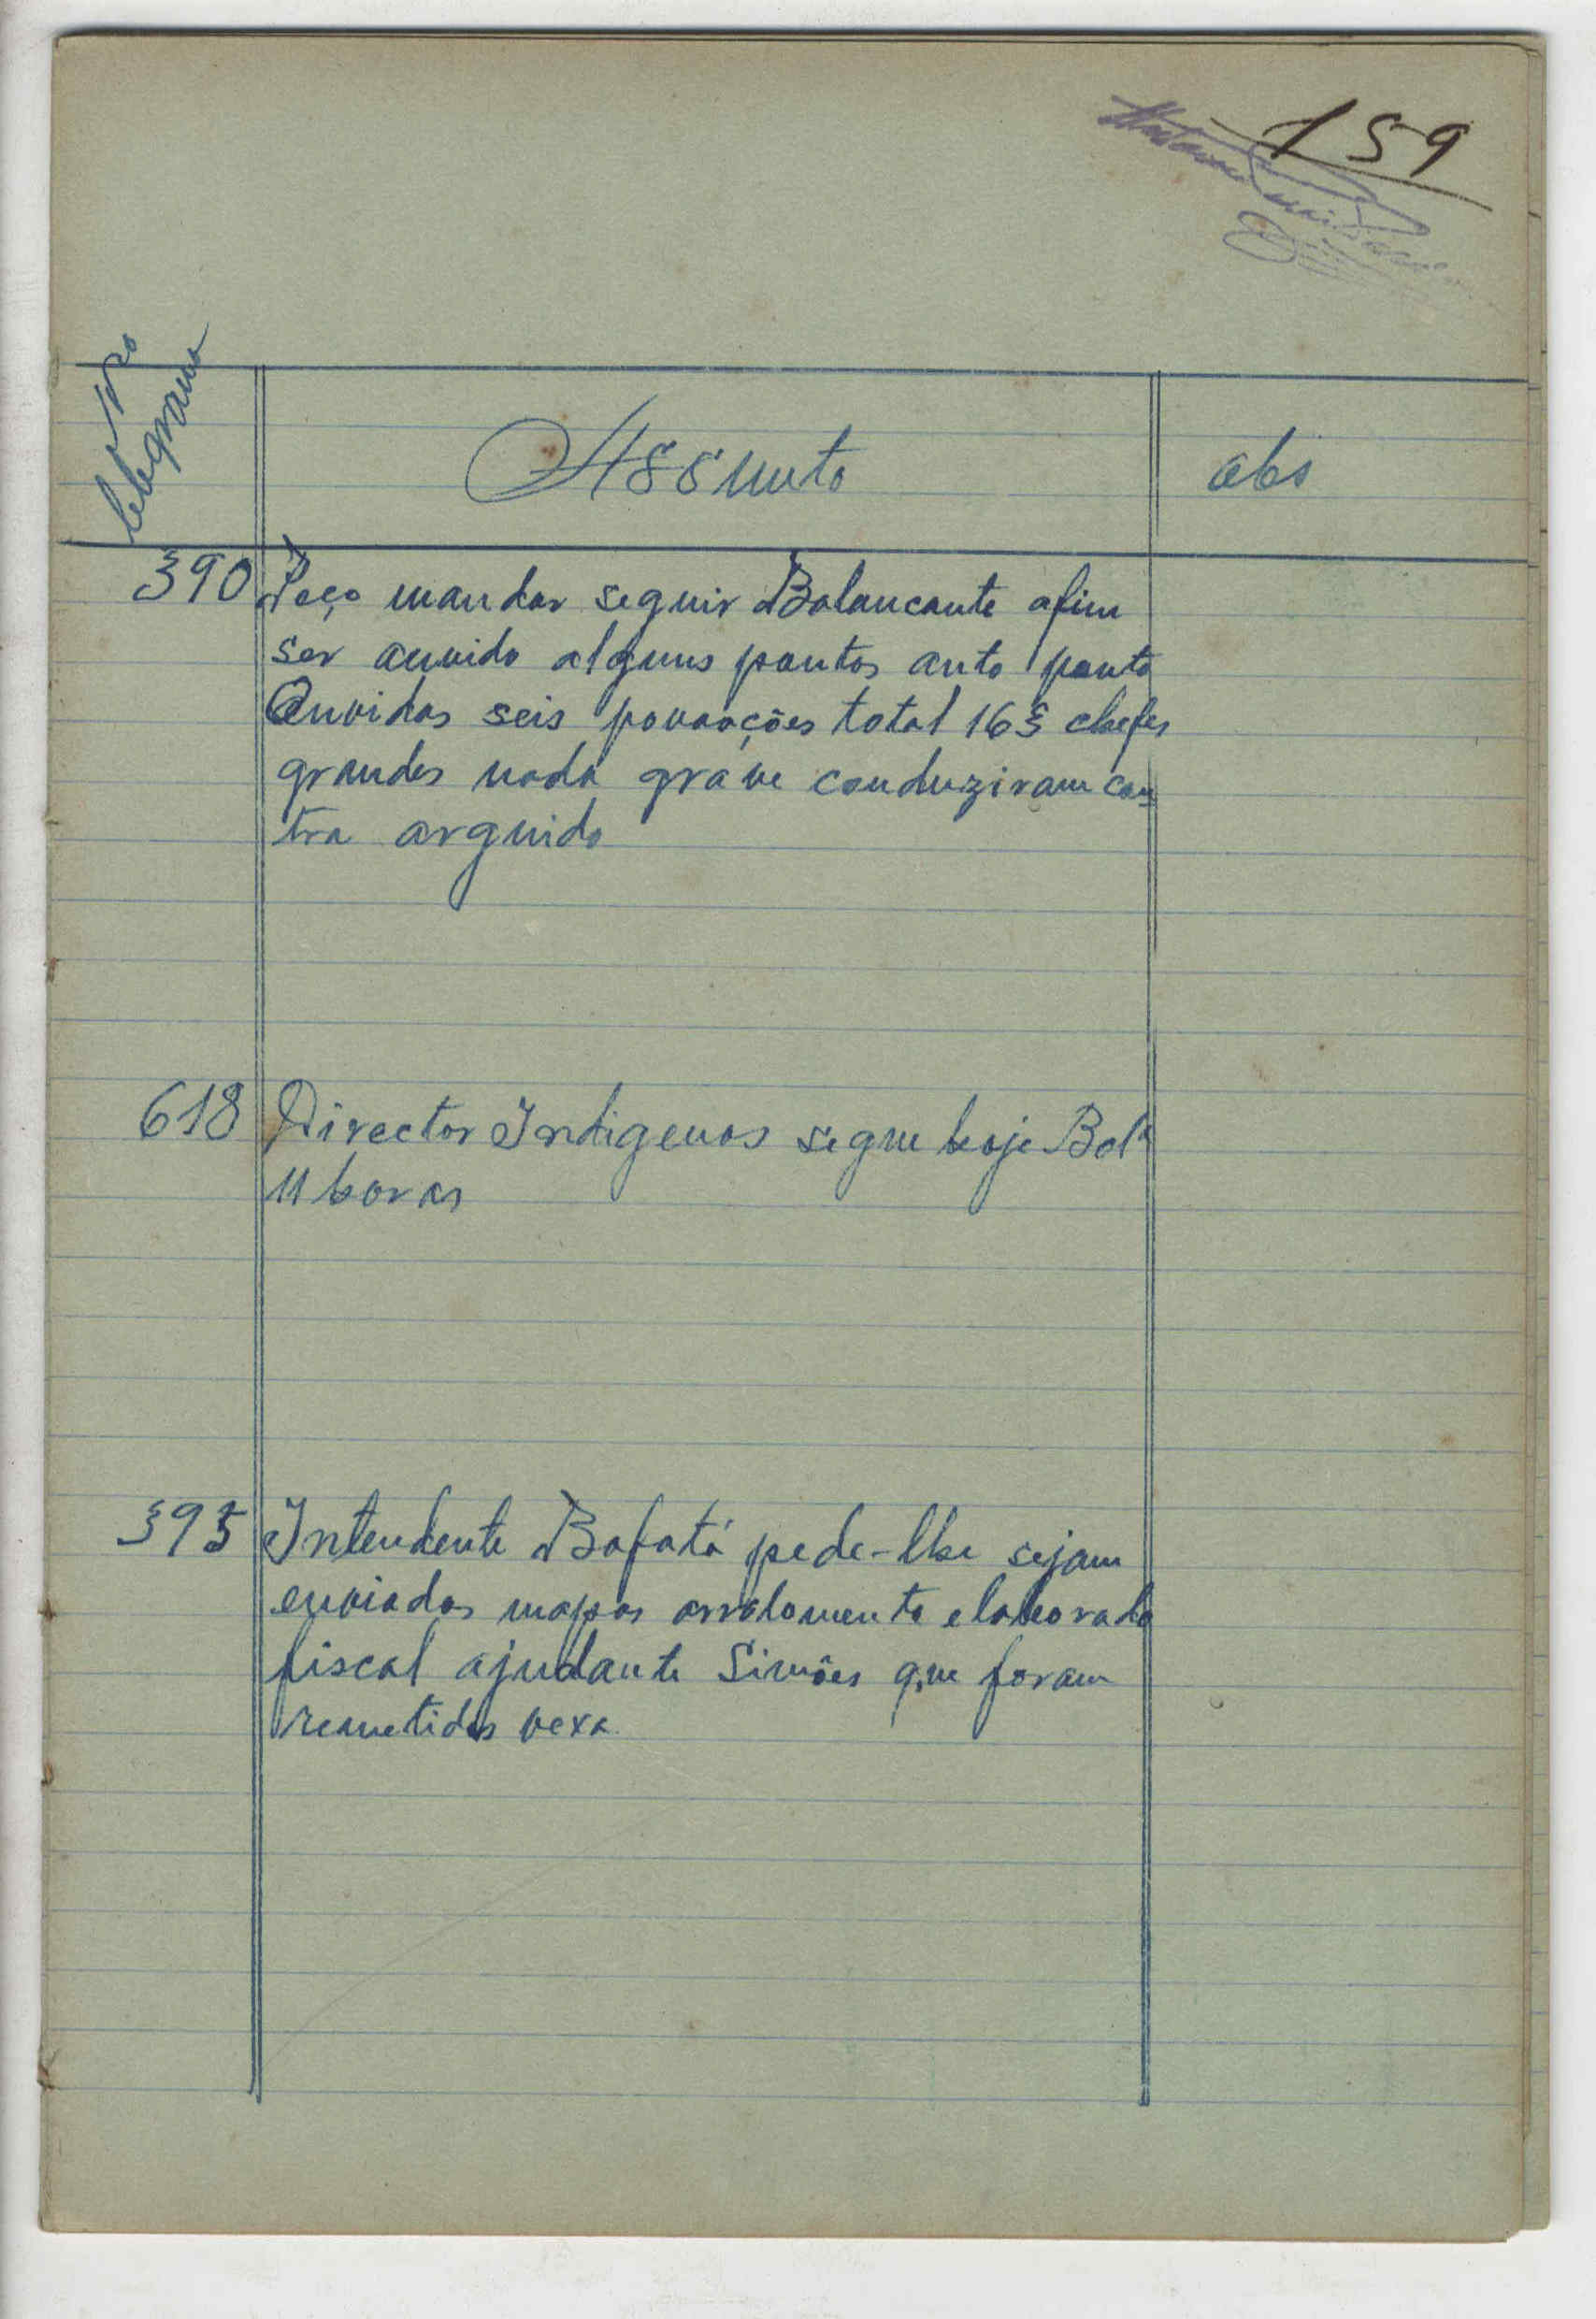 159
Nº do
telegrama
Assunto
obs
390 Peço mandar seguir Balancante afim
ser ouvido alguns pontos auto ponto
Ouvidas seis povoações total 163 chefes
grandes nada grave conduziram con
tra arguido
618 Director Indigenas segue hoje Bolª
11 horas
395 Intendente Bafatá pede-lhe sejam
enviados mapas arrolamento elaborado
fiscal ajudante Simões que foram
remetidos vexa